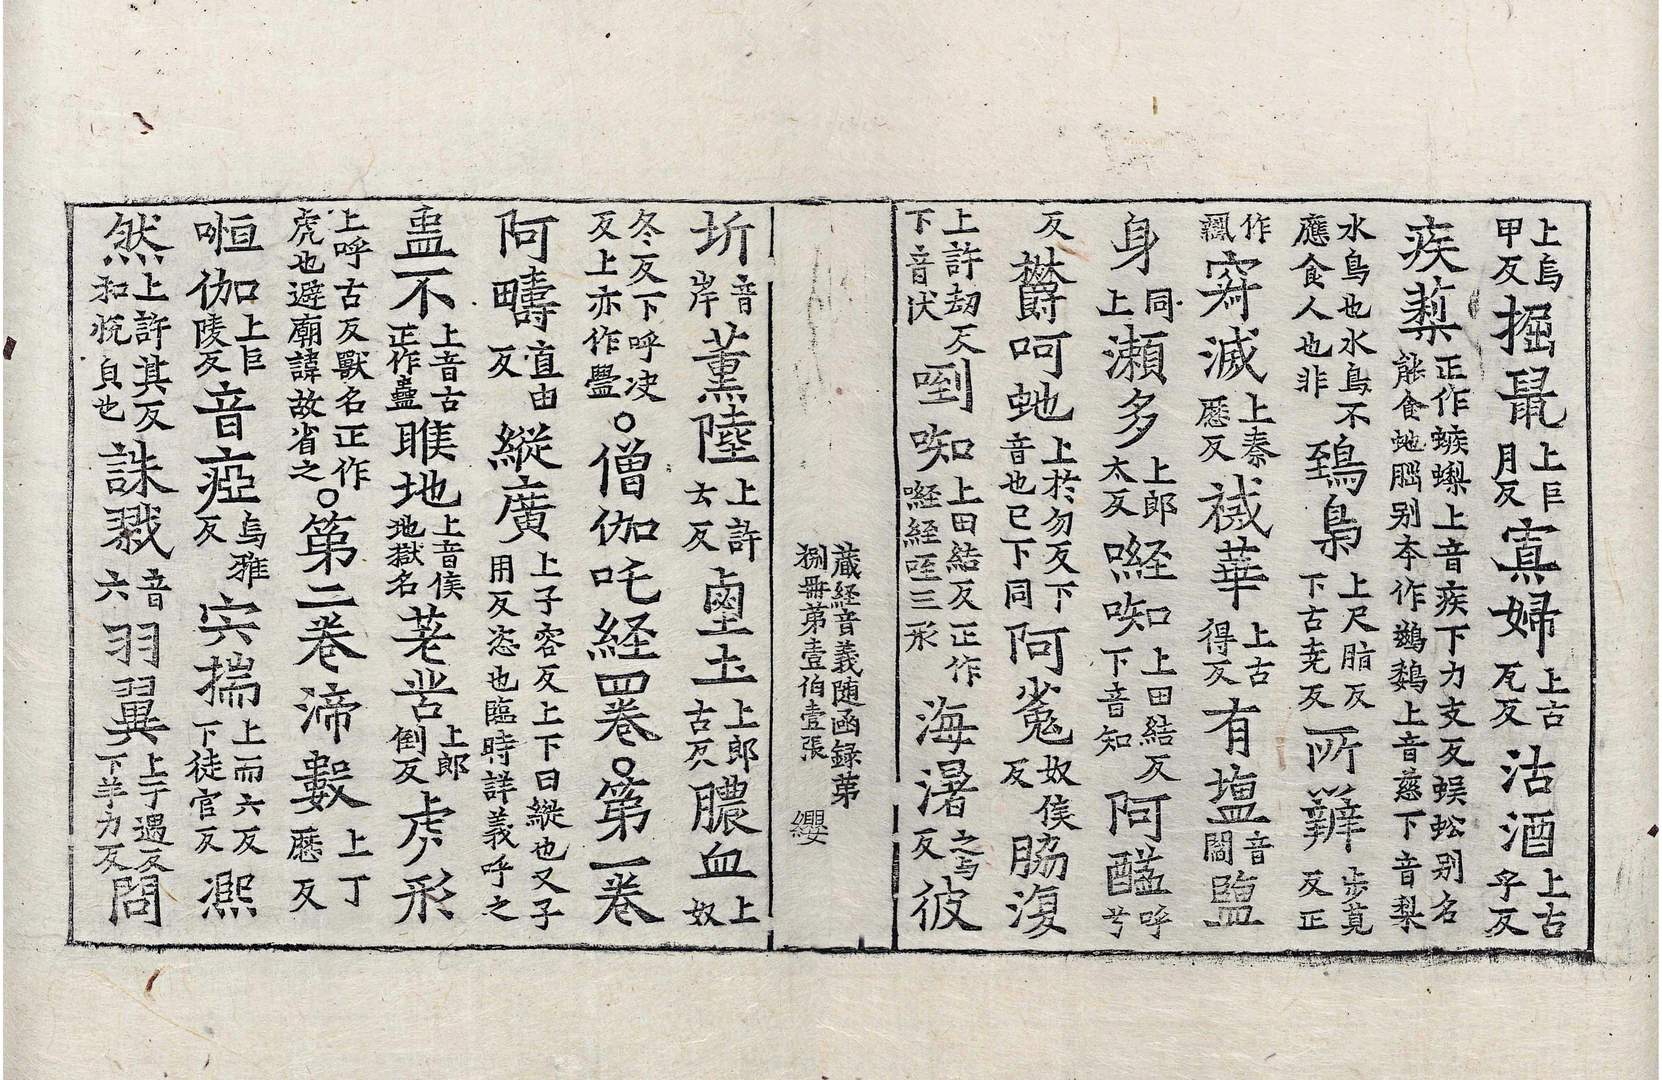 上烏甲反掘鼠上巨月反寡婦上古瓦反沽酒上古乎反
疾蔾正作蟍上音疾下力支反蜈蚣别名能食虵𦛁别本作鷀鶈上音慈下音梨
水鳥也水鳥不應食人也非鵄梟上尺脂反下古堯反所辦步莧反正
作瓣穷滅上秦歷反祴華上古得反有塩音閻盬
身同上瀬多上郎太反㘑㗌上田結反下音知阿醯呼兮
反欝呵虵上於勿反下音也已下同阿㝹奴侯反脇復
上許刼反下音伏㗚㗌上田結反正作㘑経咥三形海渚之与反彼
藏経音義随函録第捌冊第壹伯壹張 纓
圻音岸薫陸上許云反鹵土上郎古反膿血上奴
冬反下呼决反上亦作舋○僧伽吒経四卷○第一卷
阿疇直由反縱廣上子容反上下曰縱也又子用反恣也臨時詳義呼之
蛊不上音古正作蠱睺地上音侯地獄名荖苦上郎倒反虎形
上呼古反獸名正作虎也避廟諱故省之○第二卷渧數上丁歷反
㗭伽上巨陵反音瘂烏雅反宍揣上而六反下徒官反凞
然上許其反和悦皃也誅戮音六羽翼上于遇反下羊力反問